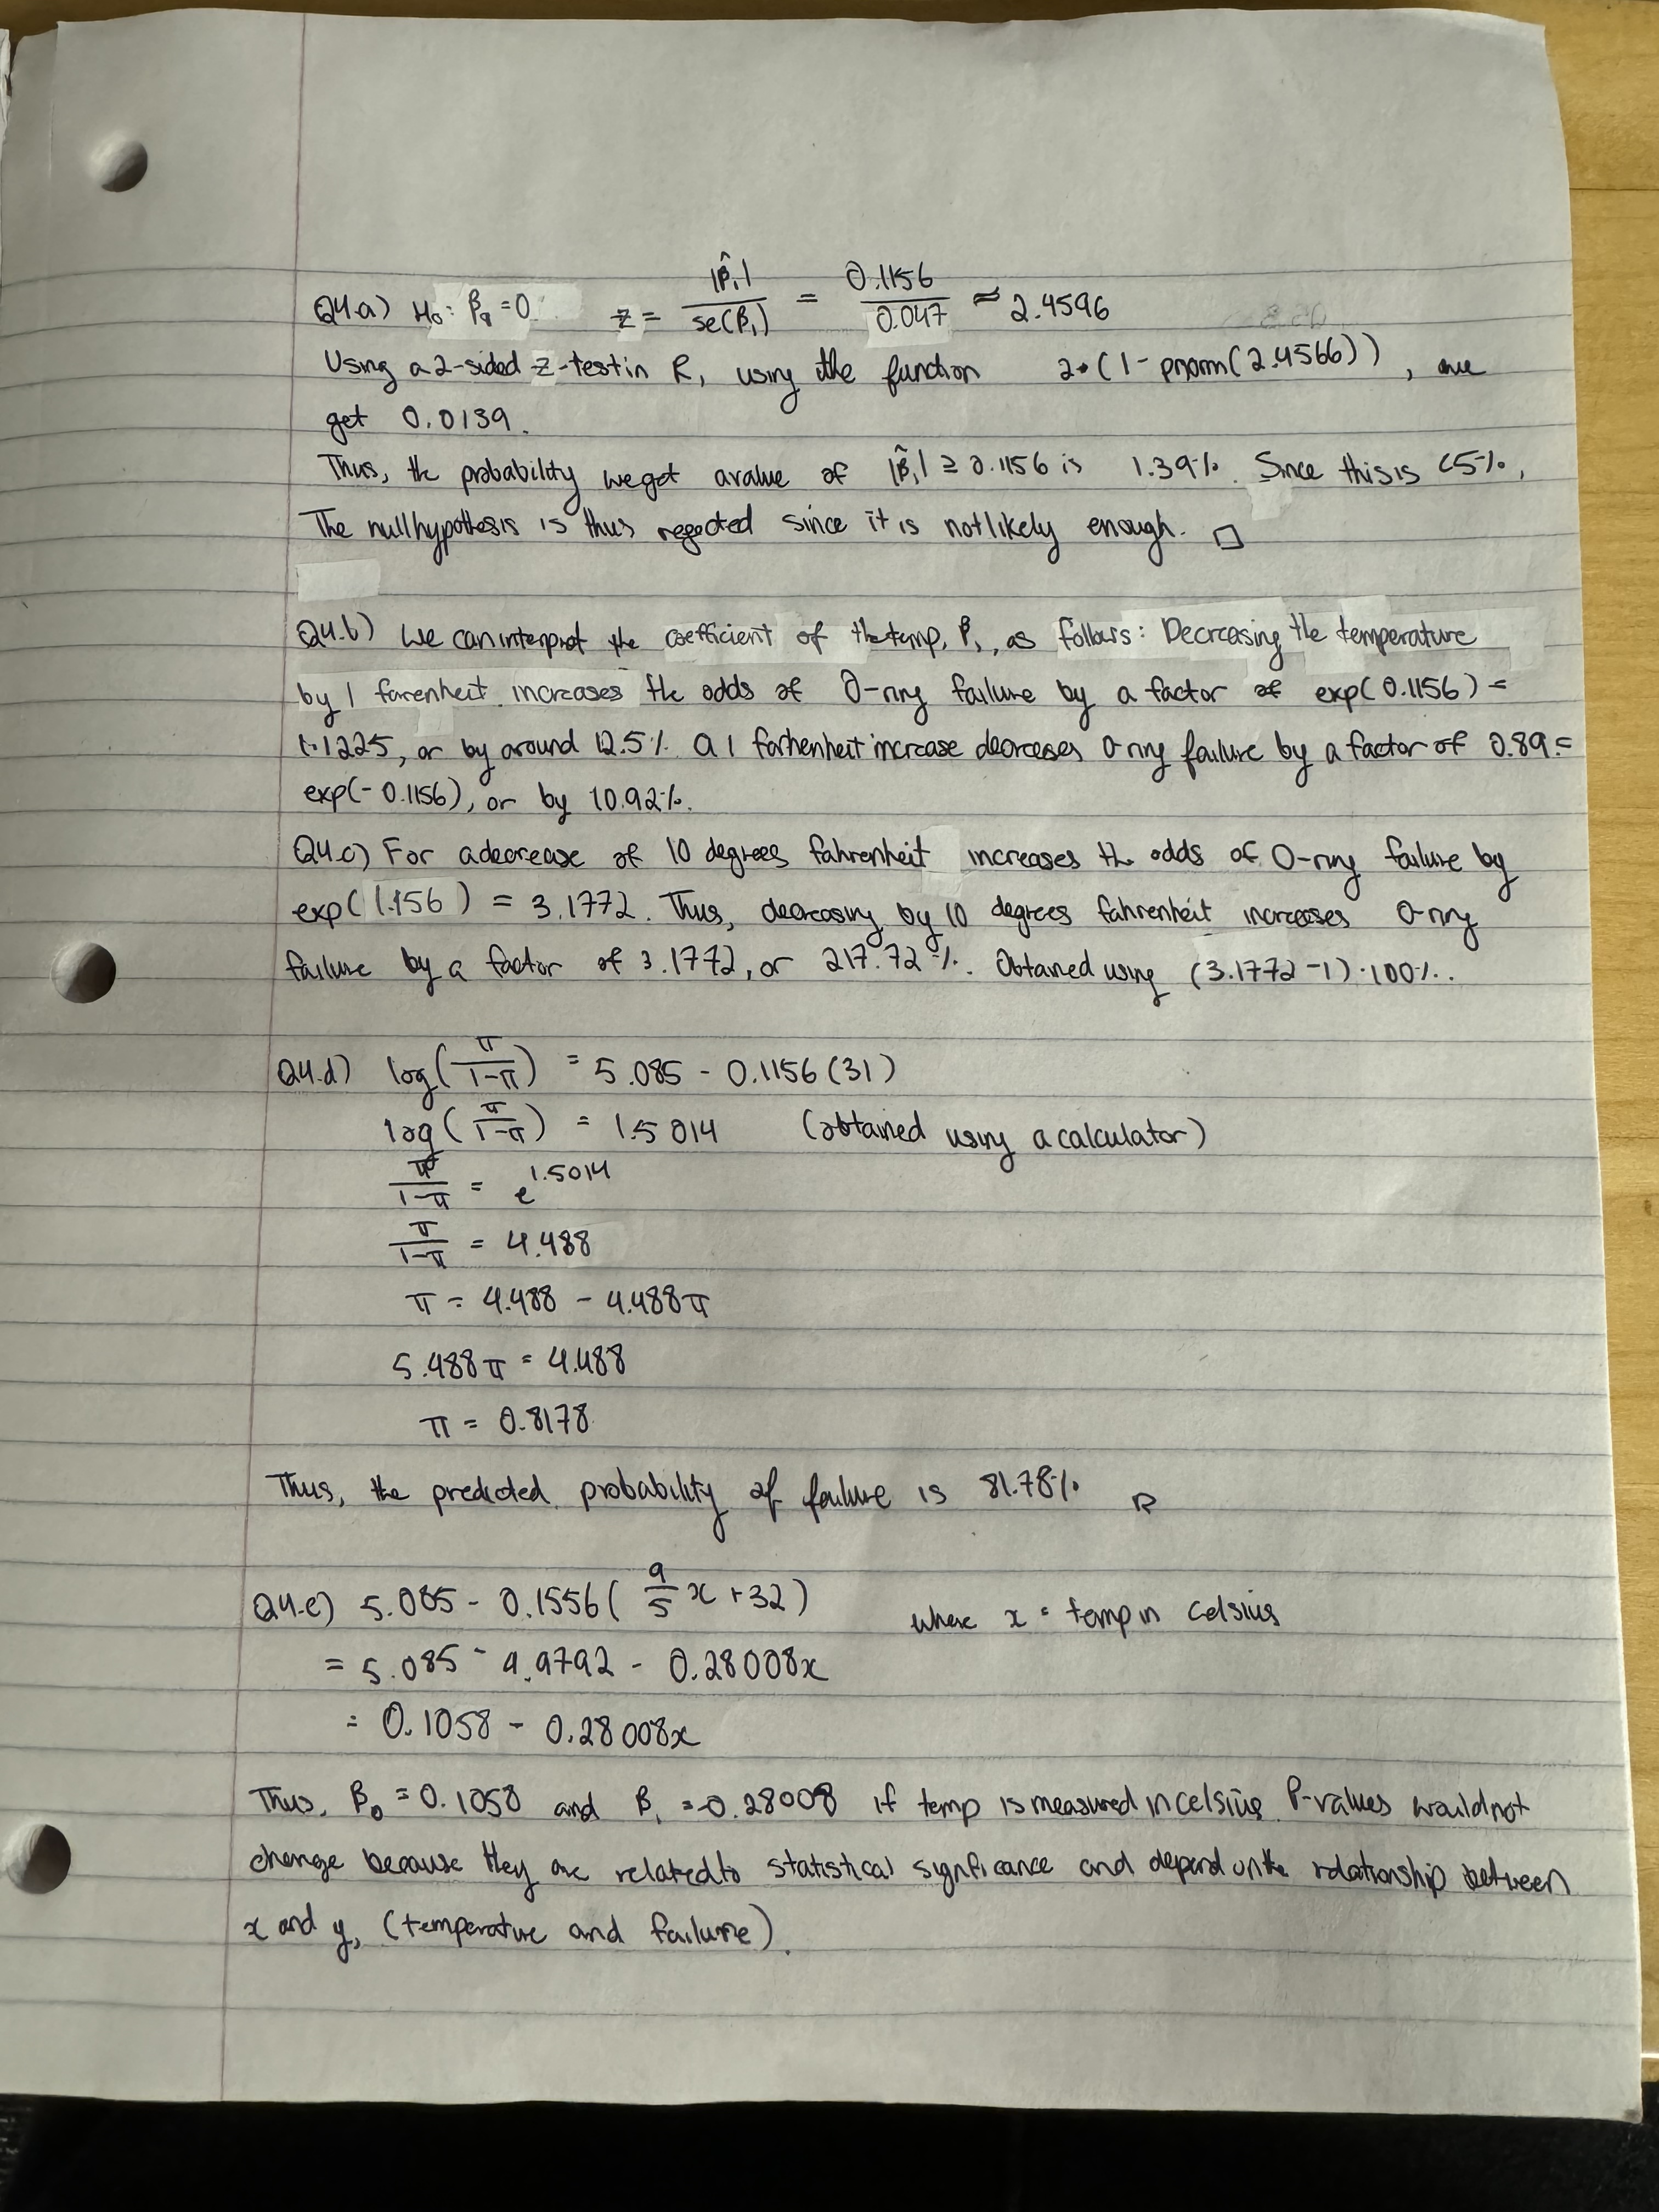 Q4.a) H₀: β₁ = 0 z = |β̂₁| / se(β̂₁) = 0.1156 / 0.047 ≈ 2.4596
Using a 2-sided z-test in R, using the function 2•(1-pnorm(2.4566)), we
get 0.0139.
Thus, the probability we get a value of |β̂₁| ≥ 0.1156 is 1.39%. Since this is <5%,
The null hypothesis is thus regected since it is not likely enough. □
Q4.b) We can interpret the coefficient of the temp, β₁, as follows: Decreasing the temperature
by 1 farenheit increases the odds of O-ring failure by a factor of exp(0.1156) =
1.1225, or by around 12.5%. A 1 farhenheit increase decreases o ring failure by a factor of 0.89 =
exp(-0.1156), or by 10.92%.
Q4.c) For a decrease of 10 degrees fahrenheit increases the odds of O-ring failure by
exp(1.156) = 3.1772. Thus, decreasing by 10 degrees fahrenheit increases O-ring
failure by a factor of 3.1772, or 217.72%. Obtained using (3.1772-1)·100%.
Q4.d) log(π/(1-π)) = 5.085 - 0.1156(31)
log(π/(1-π)) = 1.5014 (obtained using a calculator)
π/(1-π) = e^1.5014
π/(1-π) = 4.488
π = 4.488 - 4.488π
5.488π = 4.488
π = 0.8178
Thus, the predicted probability of failure is 81.78% □
Q4.e) 5.085 - 0.1556(9/5 x + 32) where x = temp in Celsius
= 5.085 - 4.9792 - 0.28008x
= 0.1058 - 0.28008x
Thus, β₀ = 0.1058 and β₁ = -0.28008 if temp is measured in celsius. P-values would not
change because they are related to statistical significance and depend on the relationship between
x and y, (temperature and failure).